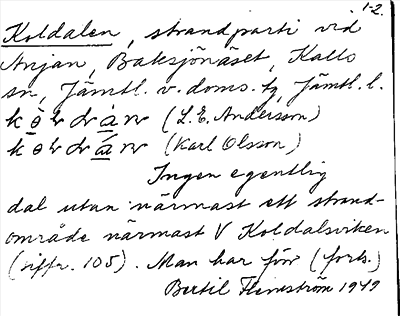 1-2.
Koldalen, strandparti vid
Anjan, Baksjönäset, Kalls
sn, Jämtl. v. doms. tg, Jämtl. l.
(L. E. Andersson)
(Karl Olsson)
Ingen egentlig
dal utan närmast ett strand-
område närmast V Koldalsviken
(siffr. 105). Man har för (forts.)
Bertil Flemström 1949